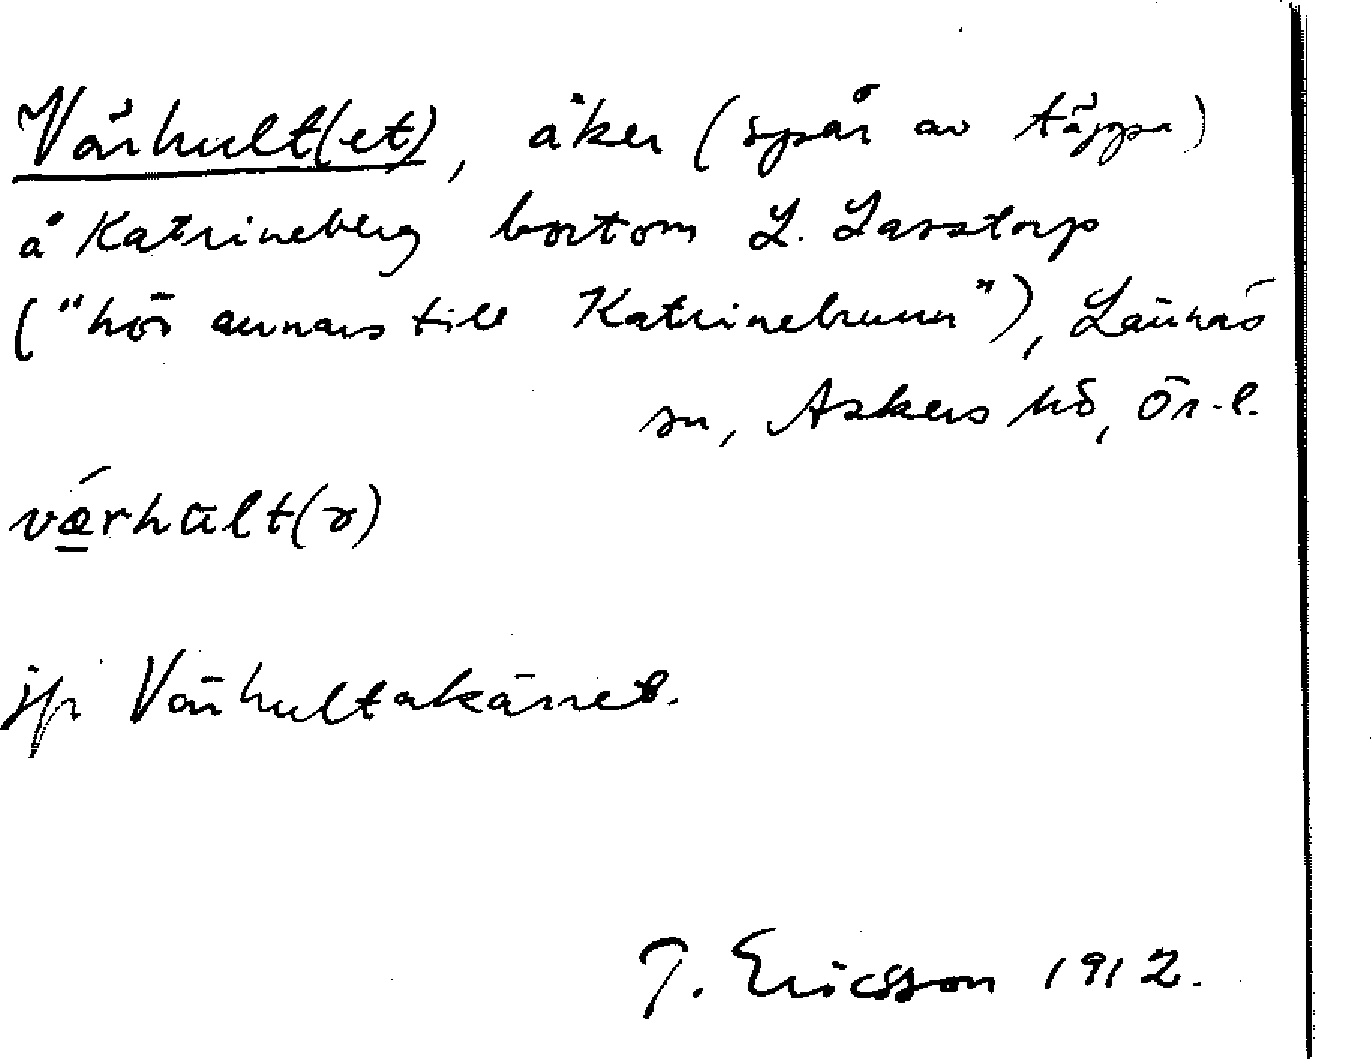 Vårhult(et), åker (spår av täppa)
å Katrineberg bortom L. Lasstorp
("hör annars till Katrinebrunn"), Lännäs
sn, Askers hd, Ör.l.
vǻrhult(ə)
jfr Vårhultakärret.
J. Ericsson 1912.